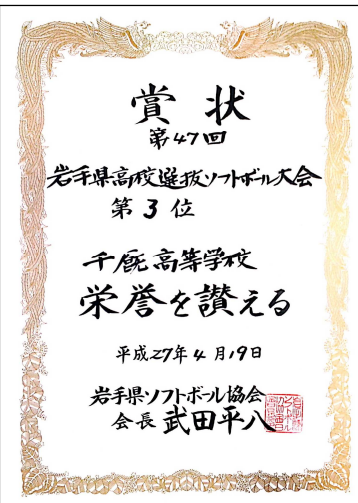 賞状
第47回
岩手県高校選抜ソフトボール大会
第3位
千厩高等学校
栄誉を讃える
平成27年4月19日
岩手県ソフトボール協会
会長 武田平八